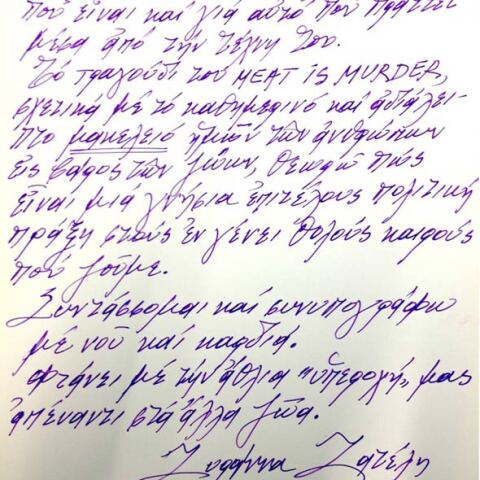 πού είναι καί γιά αὐτό πού πράττει
μέσα ἀπό τήν τέχνη του.
Τό τραγούδι του MEAT IS MURDER,
σχετικά μέ τό καθημερινό καί ἀδιάλει-
πτο μακελειό ἡμῶν τῶν ἀνθρώπων
εἰς βάρος τῶν ζώων, θεωρῶ πώς
εἶναι μιά γνήσια ἐπιτέλους πολιτική
πράξη στούς ἐν γένει θολούς καιρούς
πού ζοῦμε.
Συντάσσομαι καί συνυπογράφω
μέ νοῦ καί καρδιά.
Φτάνει μέ τήν ἄθλια "ὑπεροχή" μας
ἀπέναντι στά ἄλλα ζῶα.
Ζυράννα Ζατέλη